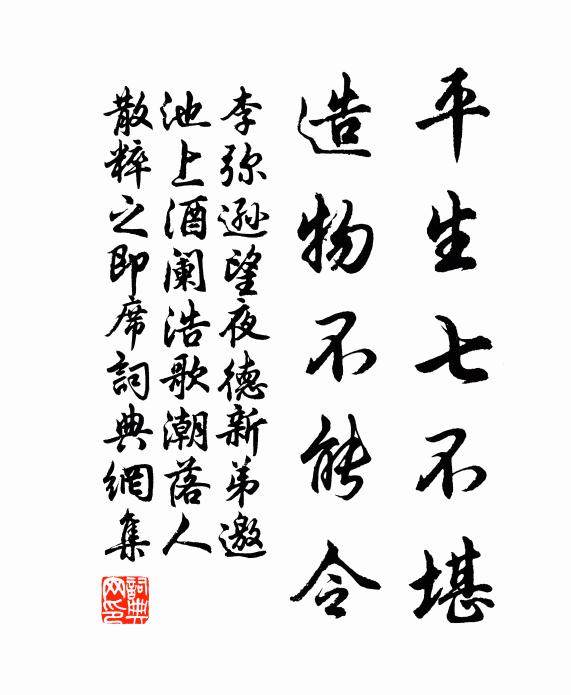 平生七不堪
造物不能令
李弥逊望夜德新弟邀
池上酒阑浩歌潮落人
散粹之即席詞典網集
詞典
网印